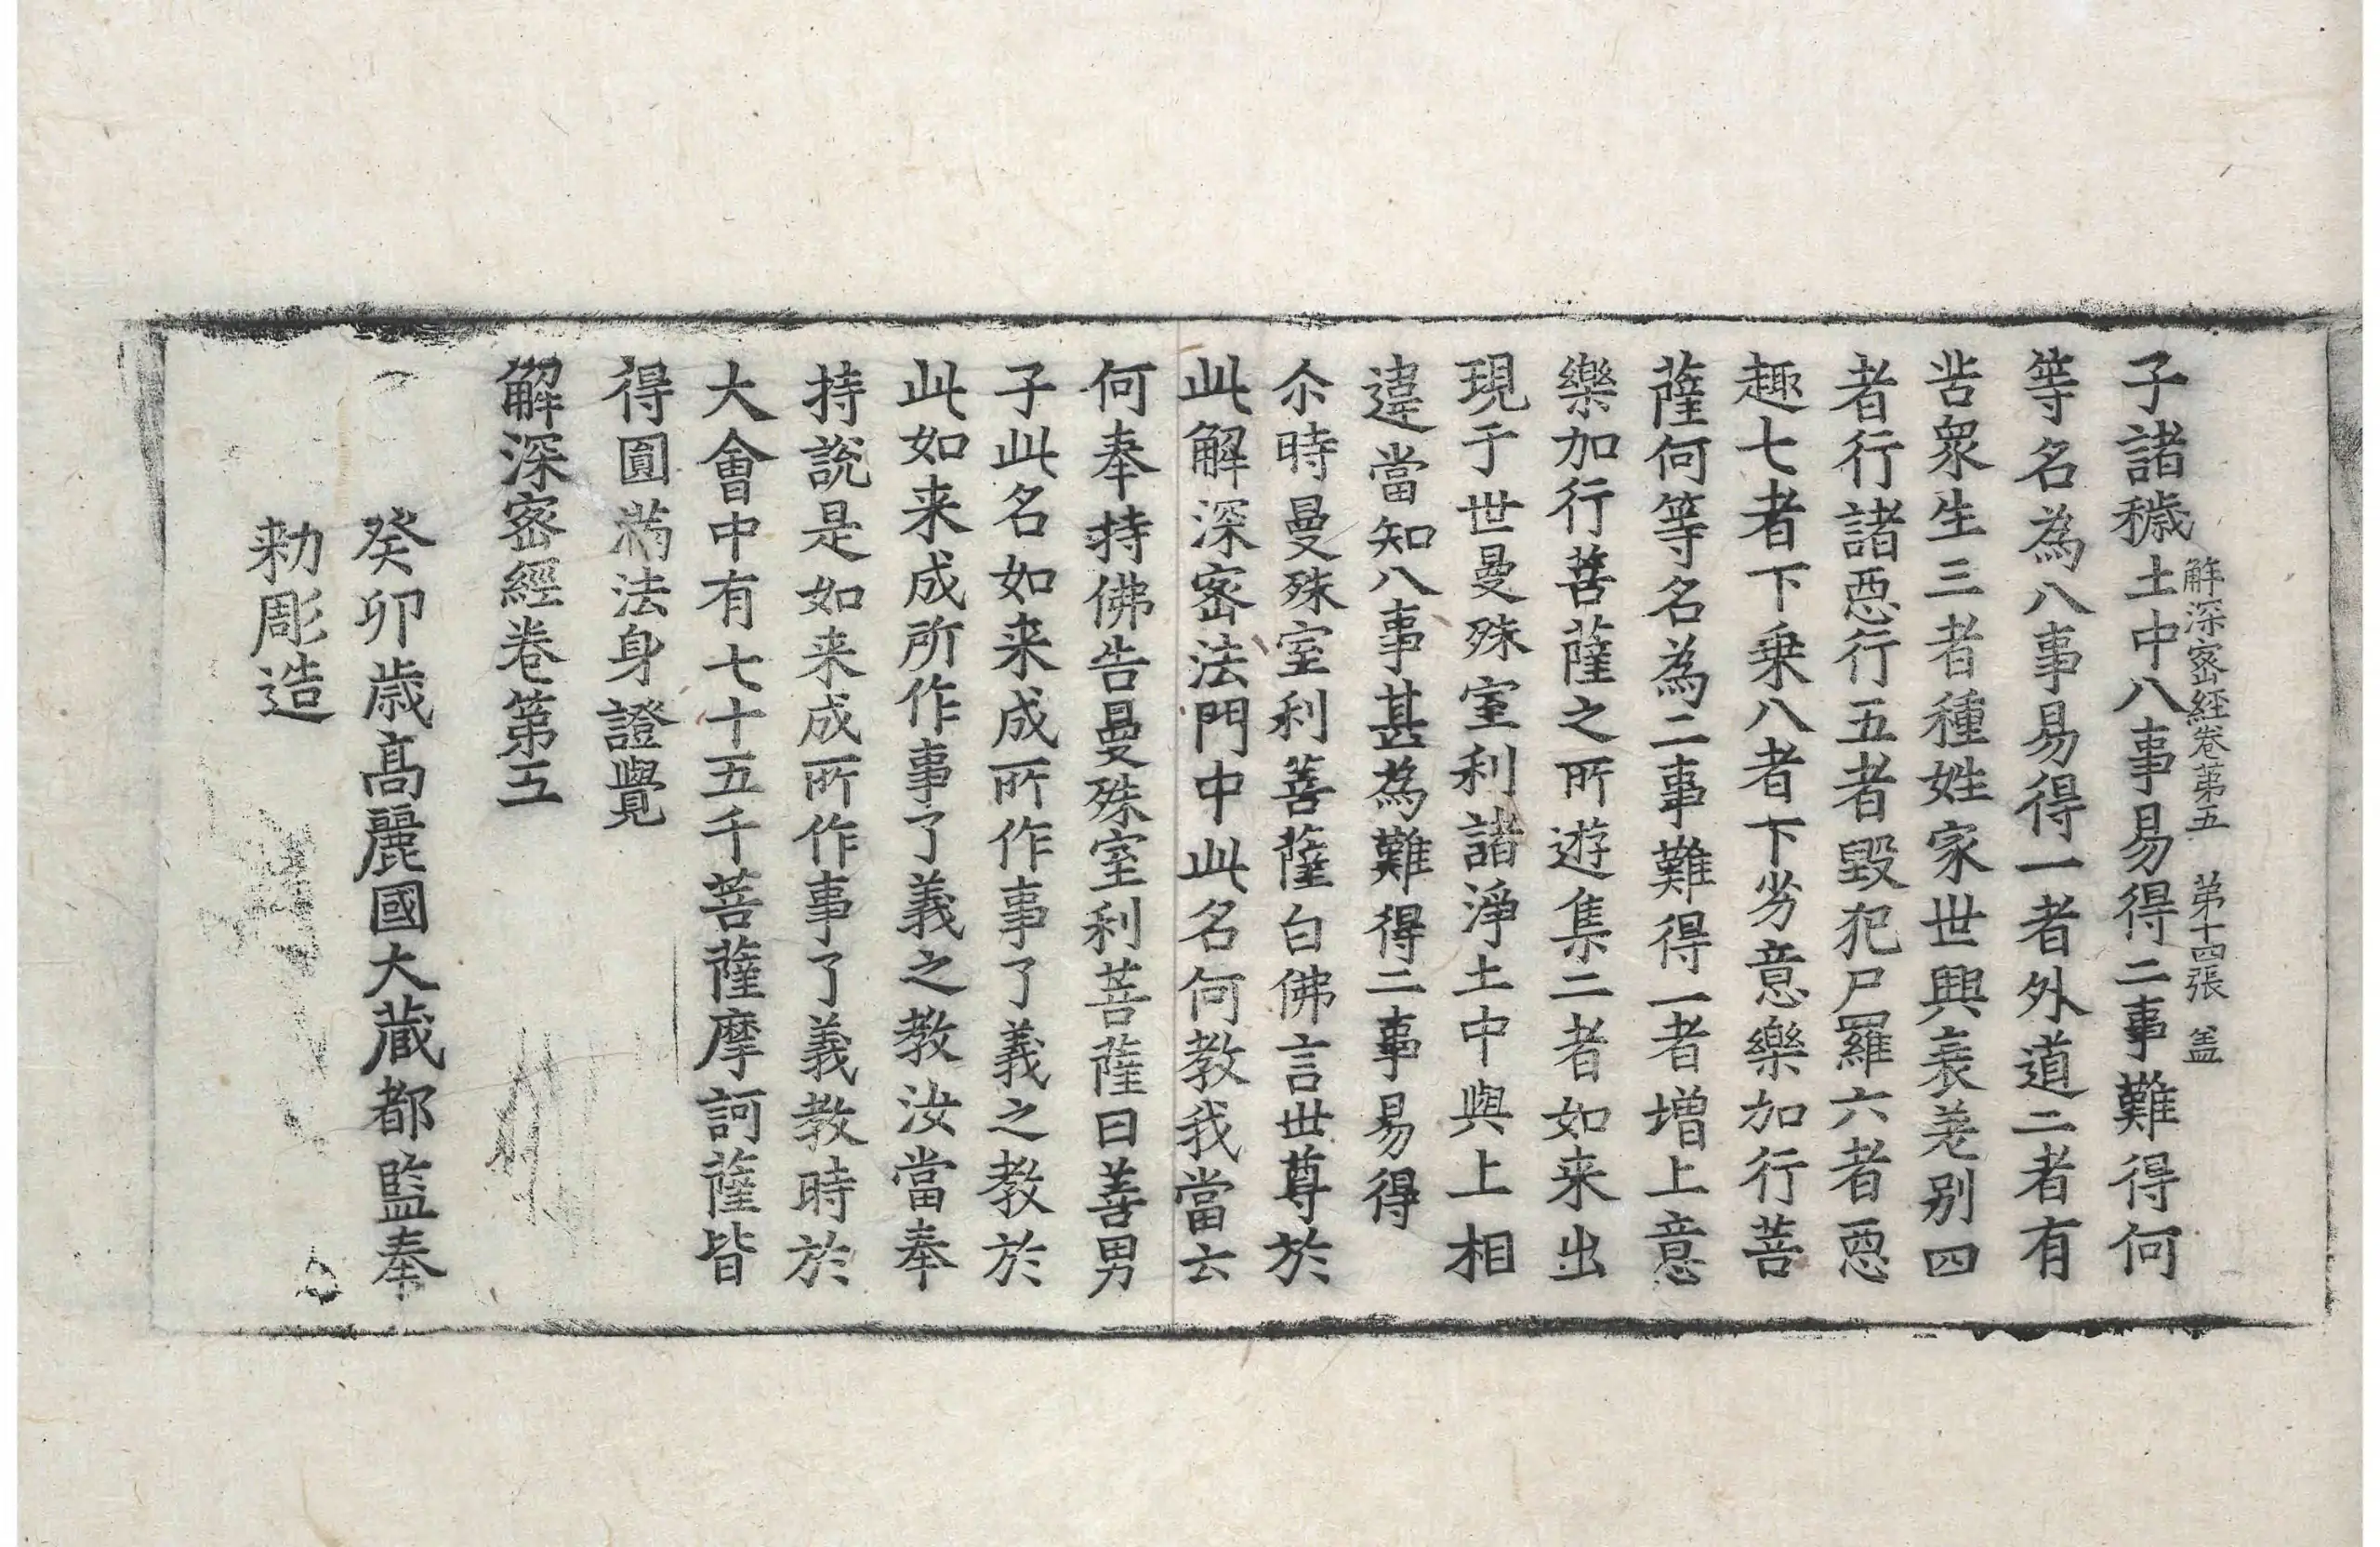 解深密經卷第五　第十四張　盖
子諸穢土中八事易得二事難得何
等名為八事易得一者外道二者有
苦衆生三者種姓家世興衰差别四
者行諸惡行五者毀犯尸羅六者惡
趣七者下乗八者下劣意樂加行菩
薩何等名為二事難得一者增上意
樂加行菩薩之所遊集二者如来出
現于世曼殊室利諸淨土中與上相
違當知八事甚為難得二事易得
尒時曼殊室利菩薩白佛言世尊於
此解深密法門中此名何教我當云
何奉持佛告曼殊室利菩薩曰善男
子此名如来成所作事了義之教於
此如来成所作事了義之教汝當奉
持說是如来成所作事了義教時於
大會中有七十五千菩薩摩訶薩皆
得圓滿法身證覺
解深密經卷第五
癸卯歳髙麗國大藏都監奉
勑彫造